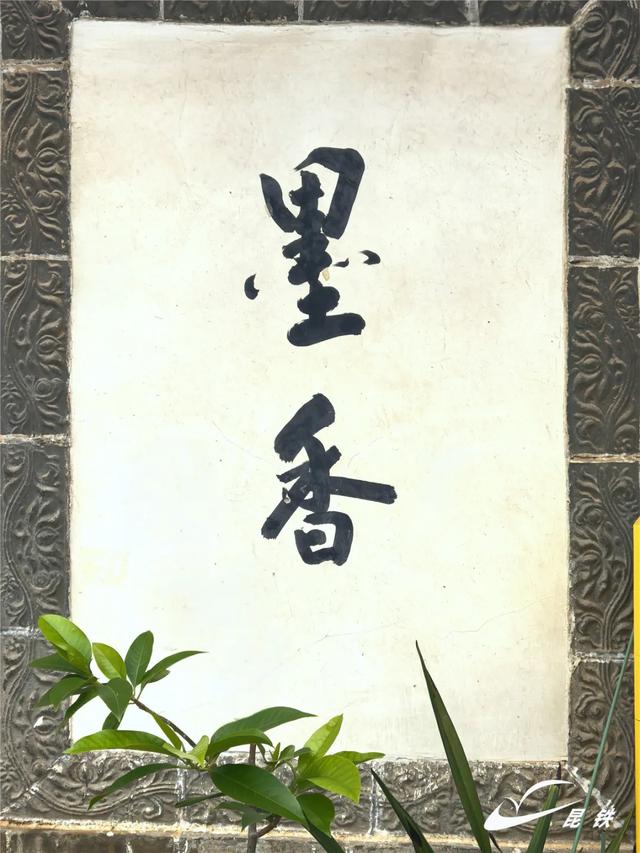 墨香
昆铁